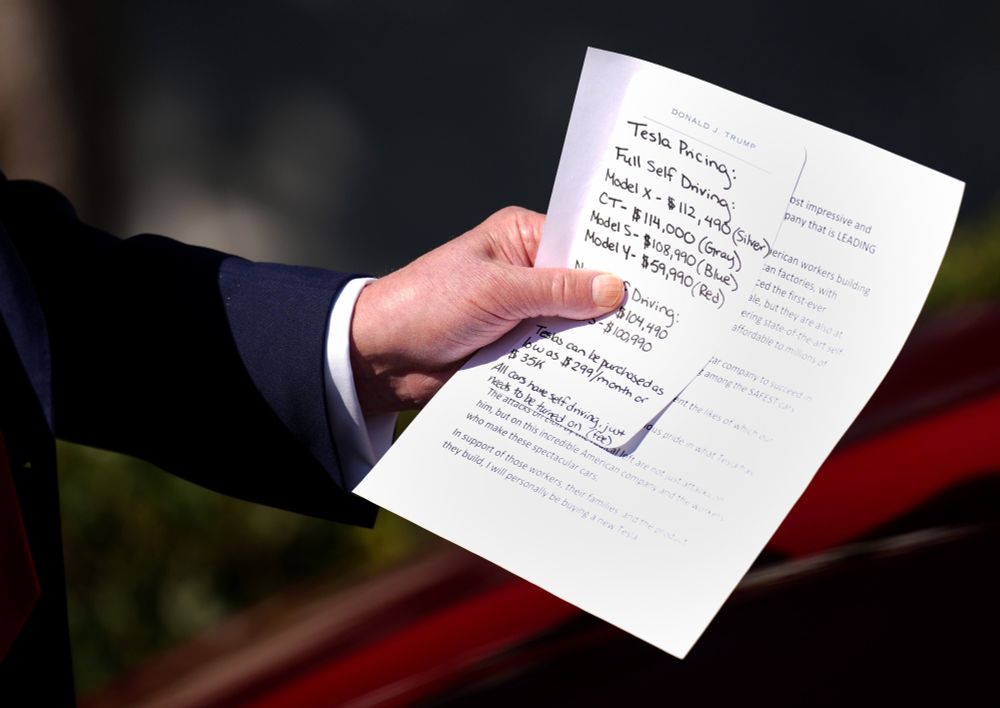 DONALD J. TRUMP
Tesla Pricing:
Full Self Driving:
Model X - $112,490 (Silver)
CT - $114,000 (Gray)
Model S - $108,990 (Blue)
Model Y - $59,990 (Red)
Driving:
$104,490
$100,990
Teslas can be purchased as
low as $299/month or
$35K
All cars have self driving, just
needs to be turned on (fee)
impressive and
that is LEADING
workers building
factories, with
the first-ever
but they are also at
state-of-the-art self
affordable to millions of
company to succeed in
among the SAFEST cars
the likes of which our
pride in what Tesla has
The attacks on left are not just attacks on
him, but on this incredible American company and the workers
who make these spectacular cars.
In support of those workers, their families, and the product
they build, I will personally be buying a new Tesla